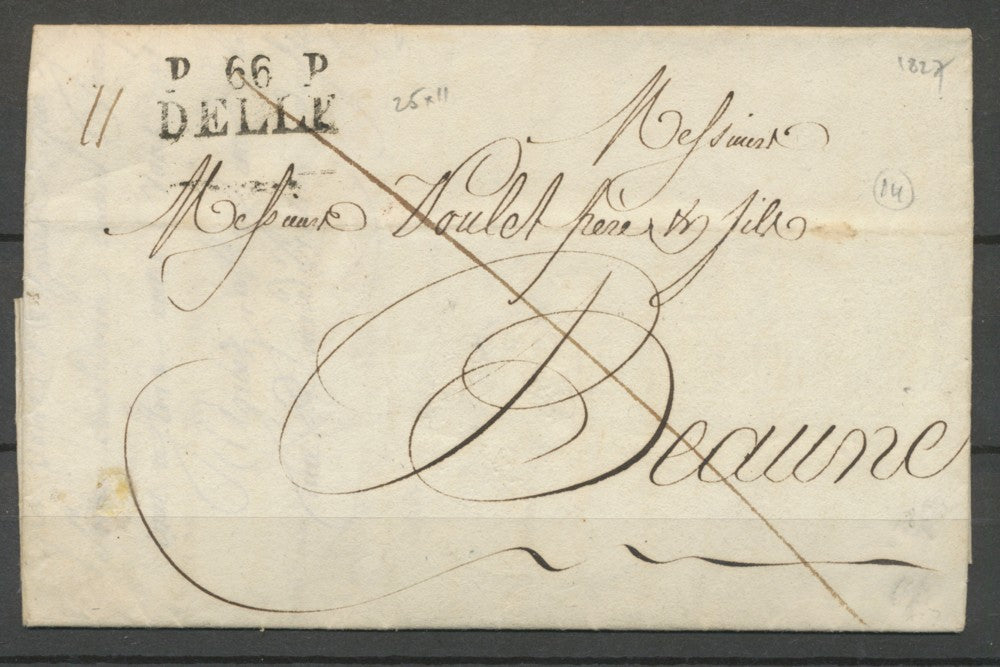 P 66 P
DELLE
11
25x11
1827
14
Messieurs
Messieurs Voulet frère & fils
Beaune